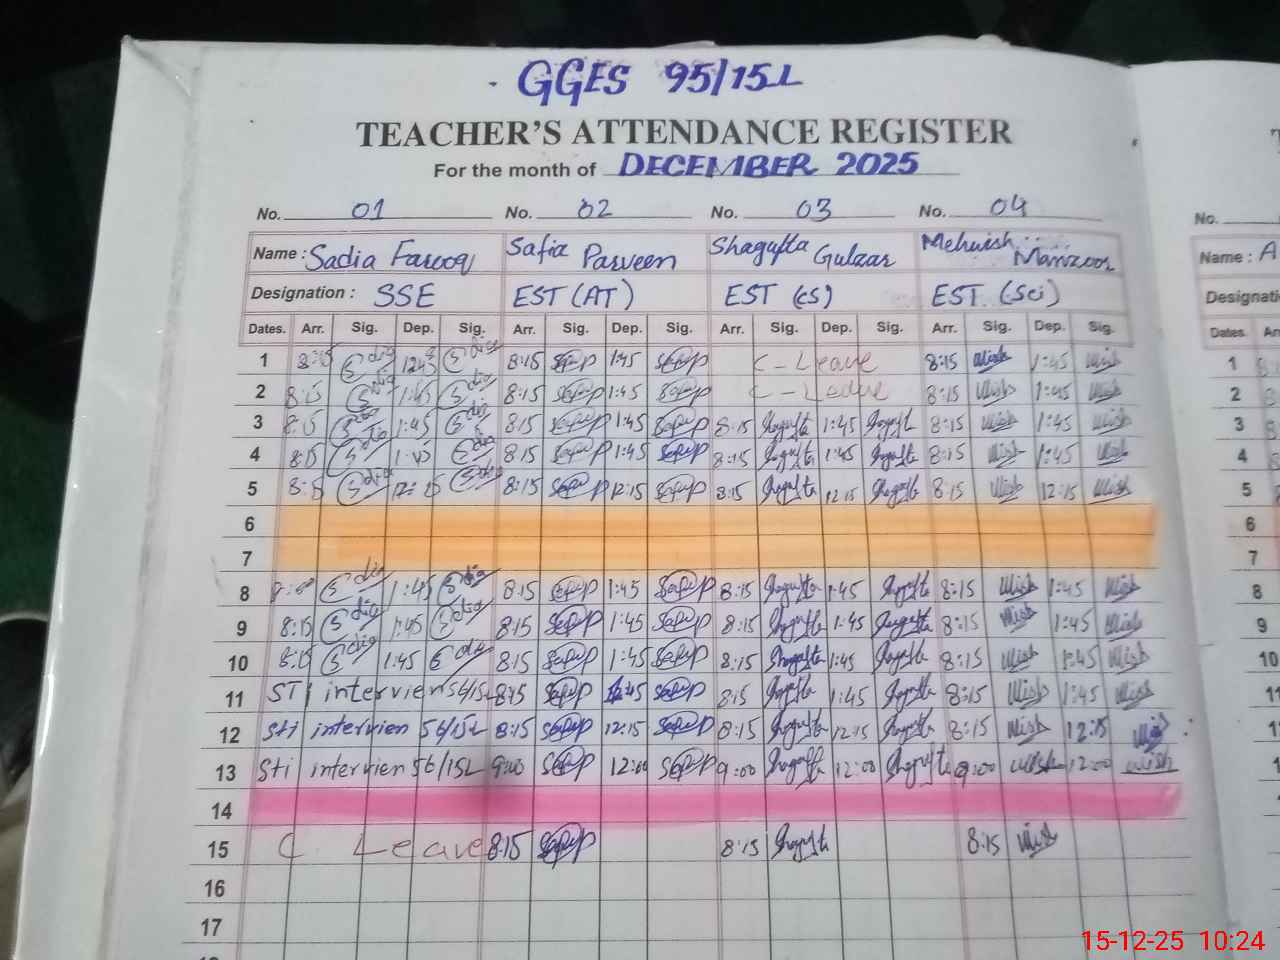 GGES 95/15L
TEACHER'S ATTENDANCE REGISTER
For the month of DECEMBER 2025
No. 01 No. 02 No. 03 No. 04 No.
Name : Sadia Farooq Safia Parveen Shagufta Gulzar Mehwish Manzoor Name : A
Designation : SSE EST (AT) EST (CS) EST (Sci) Designati
Dates. Arr. Sig. Dep. Sig. Arr. Sig. Dep. Sig. Arr. Sig. Dep. Sig. Arr. Sig. Dep. Sig. Dates. Ar
1 8:15 8:15 1:45 C - Leave 8:15 1:45 1
2 8:15 1:45 8:15 1:45 C - Leave 8:15 1:45 2
3 8:15 1:45 8:15 1:45 8:15 Shagufta 1:45 Shagufta 8:15 1:45 3
4 8:15 1:45 8:15 1:45 8:15 Shagufta 1:45 Shagufta 8:15 1:45 4
5 8:15 12:15 8:15 12:15 8:15 Shagufta 12:15 Shagufta 8:15 12:15 5
6 6
7 7
8 1:45 8:15 1:45 8:15 Shagufta 1:45 Shagufta 8:15 1:45 8
9 8:15 1:45 8:15 1:45 8:15 Shagufta 1:45 Shagufta 8:15 1:45 9
10 8:15 1:45 8:15 1:45 8:15 Shagufta 1:45 Shagufta 8:15 1:45 10
11 STI intervien 56/15L 8:15 1:45 8:15 Shagufta 1:45 Shagufta 8:15 1:45 11
12 Sti intervien 56/15L 8:15 12:15 8:15 Shagufta 12:15 Shagufta 8:15 12:15
13 Sti intervien 56/15L 9:00 12:00 9:00 Shagufta 12:00 Shagufta 9:00 12:00
14
15 C Leave 8:15 8:15 Shagufta 8:15
16
17
15-12-25 10:24